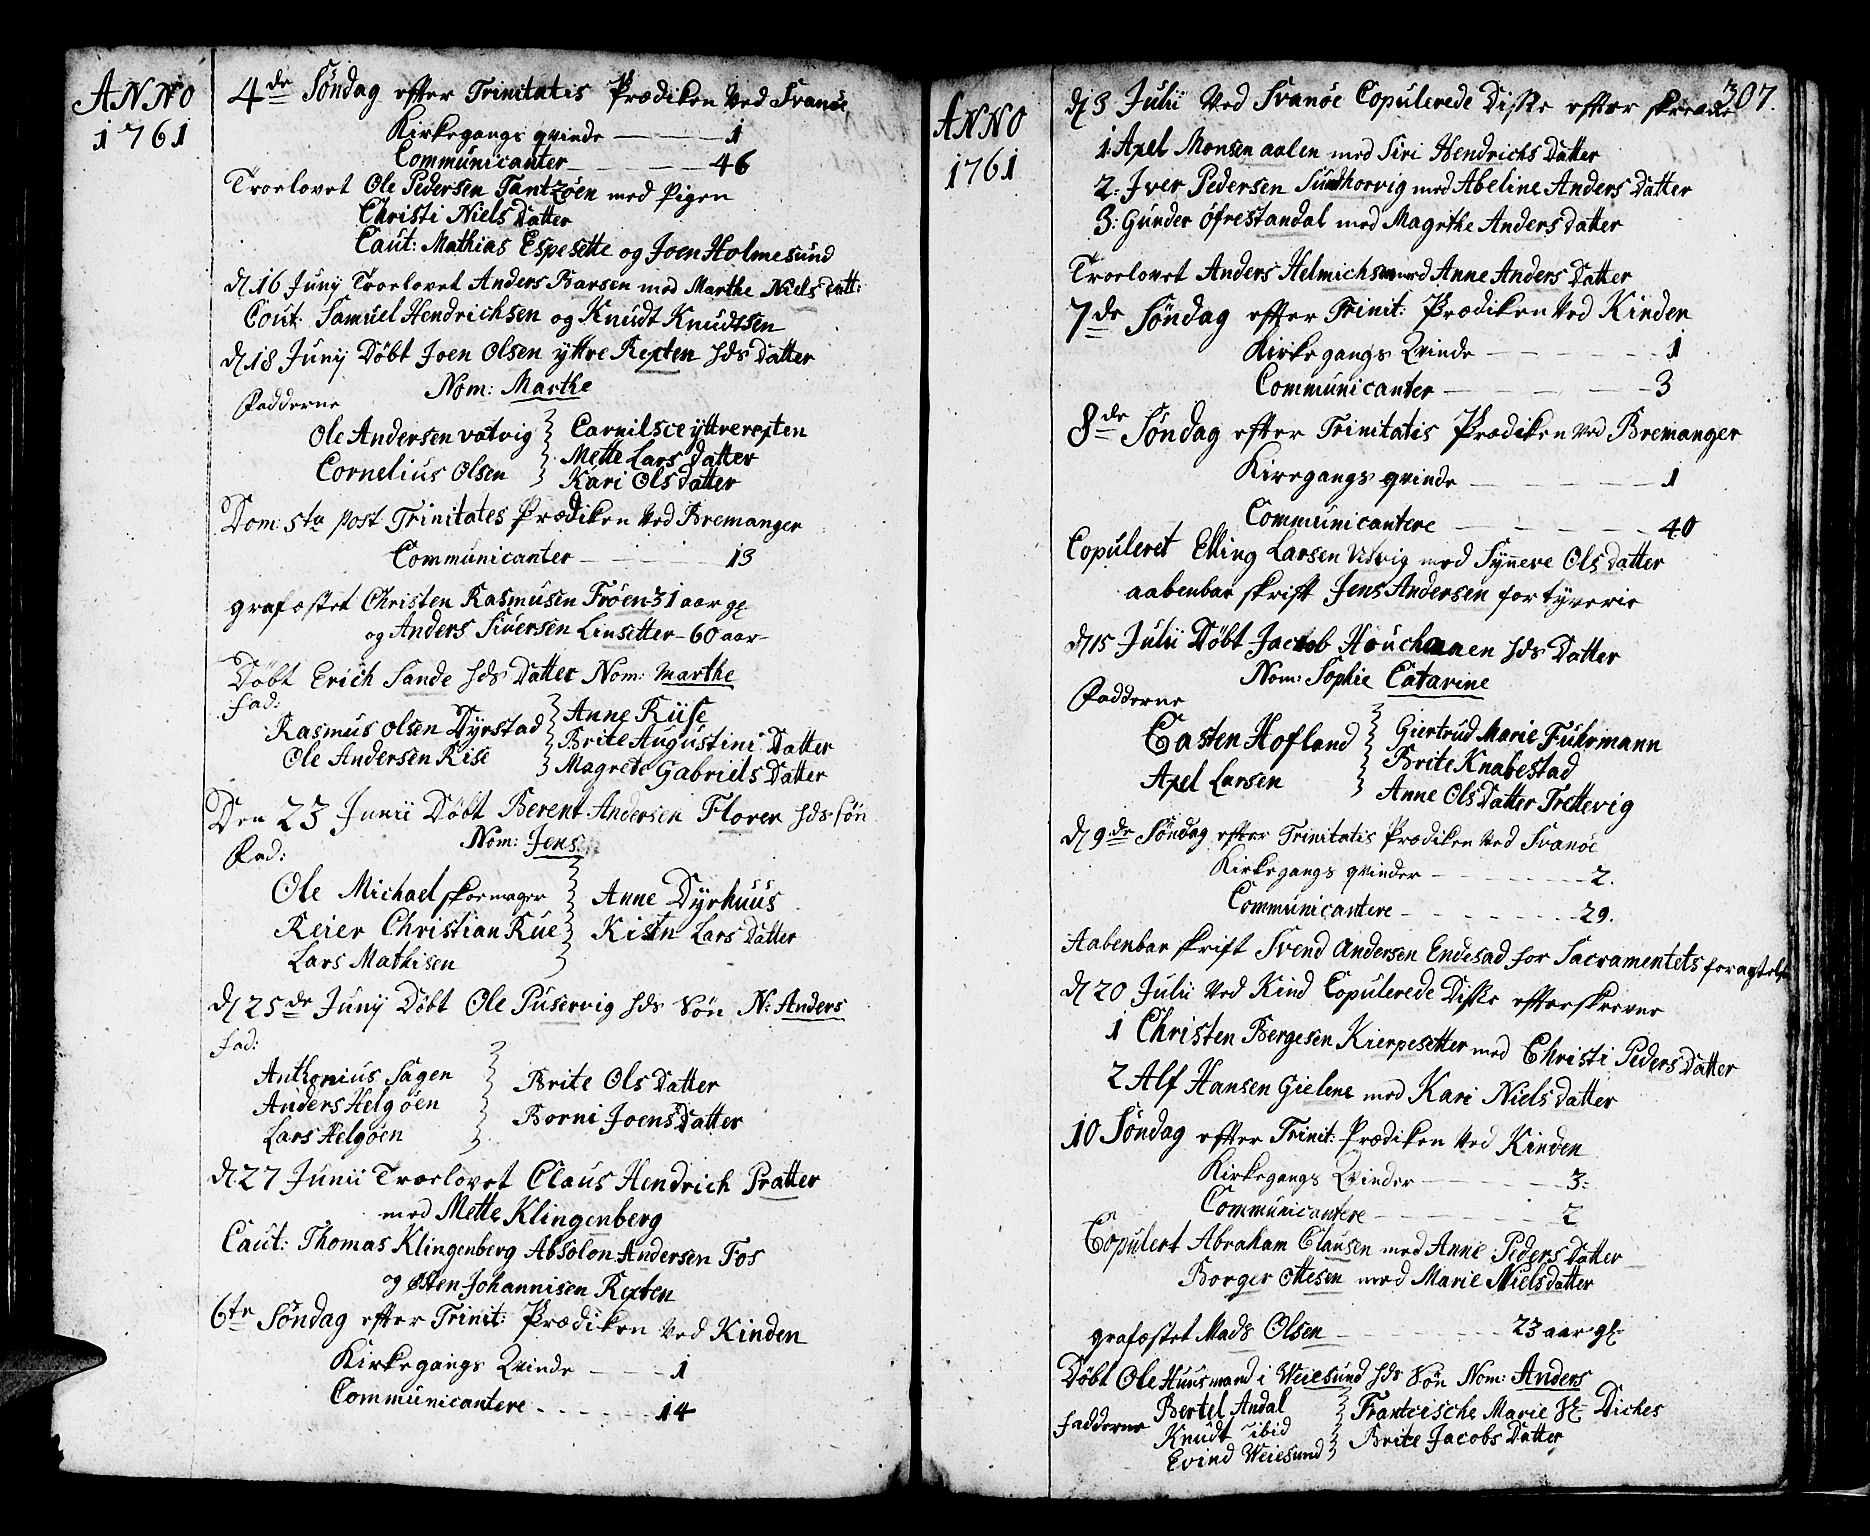 ANNO
1761
4de Söndag efter Trinitatis Prædiken Ved Svanöe
Kirkegangs qvinde 1
Communicanter 46
Troelovet Ole Pedersen Tantzöen med Pigen
Christi Niels Datter
Caut: Mathias Espesette og Joen Holmesund
d 16 Junij Troelovet Anders Barsen med Marthe Niels datt:
Cout. Samuel Hendrichsen og Knudt Knudtsen
d 18 Junij Döbt Joen Olsen yttre Rexten hds Datter
Nom: Marthe
Fadderne
Ole Andersen vatvig Carnilsce yttrerexten
Mette Lars datter
Cornelius Olsen Kari Ols datter
Dom: 5ta post Trinitates Prædiken Ved Bremanger
Communicanter 13
grafæstet Christen Rasmusen Fröen 31 aar gl
og Anders Siversen Linsetter 60 aar
Döbt Erich Sande hds Datter Nom: Marthe
fad:
Rasmus Olsen Dyrstad Anne Riise
Brite Augustini Datter
Ole Andersen Rise Magrete Gabriels Datter
Den 23 Junii Döbt Berent Andersen Florer hds sön
Nom: Jens
Fad:
Ole Michael skoemager Anne Dyrhuus
Reier Christian Rue Kistn Lars Datter
Lars Mathisen
d 25de Junij Döbt Ole Puservig hds Sön N: Anders
fad:
Anthonius Sagen Brite Ols Datter
Anders Helgöen
Lars Helgöen Borni Joens Datter
d 27 Junii Troelovet Claus Hendrich Pratter
med Mette Klingenberg
Caut: Thomas Klingenberg Absolon Andersen Fos
og Østen Johannisen Rexten
6te Söndag efter Trinit: Prædiken Ved Kinden
Kirkegangs Qvinde 1
Communicantere 14
ANNO
1761
307.
d 3 Julii Ved Svanöe Copulerede Disse efter skrevne
1: Axel Monsen aalen med Siri Hendrichs Datter
2: Iver Pedersen med Abeline Anders Datter
3: Gunder Öfrestandal med Magrethe Anders datter
Troelovet Anders Helmichsen med Anne Anders Datter
7de Söndag efter Trinit: Prædiken Ved Kinden
Kirke gangs Qvinde 1
Communicanter 3
8de Söndag efter Trinitatis Prædiken Ved Bremanger
Kiregangs qvinde 1
Communicantere 40
Copuleret Elling Larsen med Synere Ols datter
aabenbar skrift Jens Andersen for tyverie
d 15 Julii Döbt Jacob hds Datter
Nom: Sophie Catarine
Fadderne
Casten Hofland Giertrud Marie Fuhrmann
Brite Knabestad
Axel Larsen Anne Ols Datter Trettevig
d 9de Söndag efter Trinitatis Prædiken Ved Svanöe
Kirkegangs qvinder 2.
Communicantere 29.
Aabenbar skrift Svend Andersen Endesad for Sacramentets foragtelse
d 20 Julii Ved Kind Copulerede Disse efterskrevne
1 Christen Bergesen Kierpesetter med Christi Peders Datter
2 Alf Hansen Gielene med Kari Niels datter
10 Söndag efter Trinit: Prædiken Ved Kinden
Kirkegangs Qvinder 3:
Communicantere 2
Copulert Abraham Clausen med Anne Peders Datter
Borger Ottesen med Marie Nielsdatter
grafæstet Mads Olsen 23 aar gl
Döbt Ole Huusmand i Weiesund hds Sön Nom: Anders
Fadderne Bertel Andal Frantcische Marie Diches
Knudt ibid
Evind Weiesund Brite Jacobs Datter